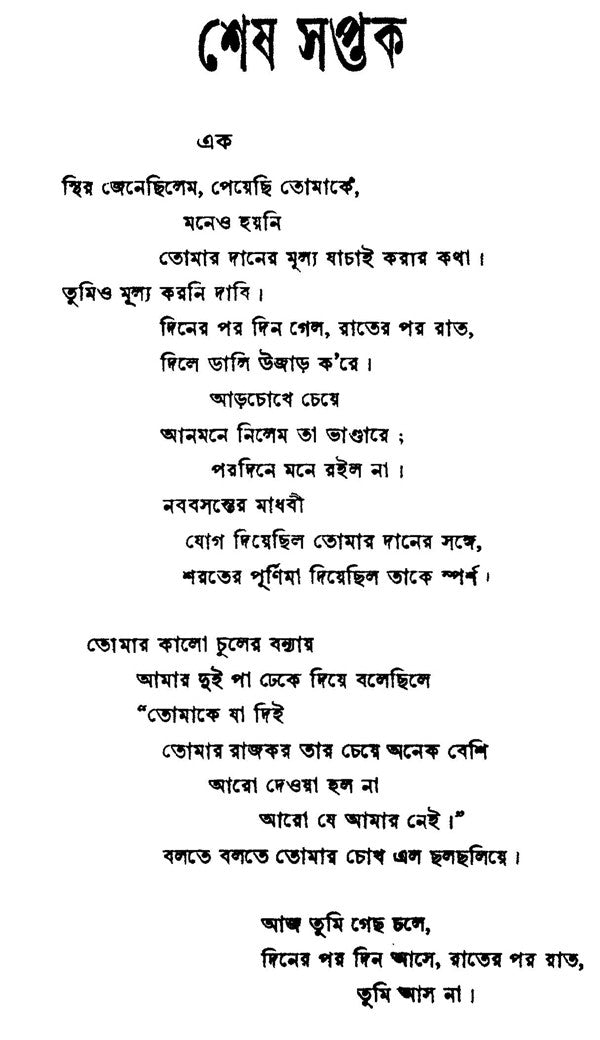 শেষ সপ্তক
এক
স্থির জেনেছিলেম, পেয়েছি তোমাকে,
মনেও হয়নি
তোমার দানের মূল্য যাচাই করার কথা।
তুমিও মূল্য করনি দাবি।
দিনের পর দিন গেল, রাতের পর রাত,
দিলে ডালি উজাড় ক'রে।
আড়চোখে চেয়ে
আনমনে নিলেম তা ভাণ্ডারে;
পরদিনে মনে রইল না।
নববসন্তের মাধবী
যোগ দিয়েছিল তোমার দানের সঙ্গে,
শরতের পূর্ণিমা দিয়েছিল তাকে স্পর্শ।
তোমার কালো চুলের বন্যায়
আমার দুই পা ঢেকে দিয়ে বলেছিলে
“তোমাকে যা দিই
তোমার রাজকর তার চেয়ে অনেক বেশি
আরো দেওয়া হল না
আরো যে আমার নেই।”
বলতে বলতে তোমার চোখ এল ছলছলিয়ে।
আজ তুমি গেছ চলে,
দিনের পর দিন আসে, রাতের পর রাত,
তুমি আস না।